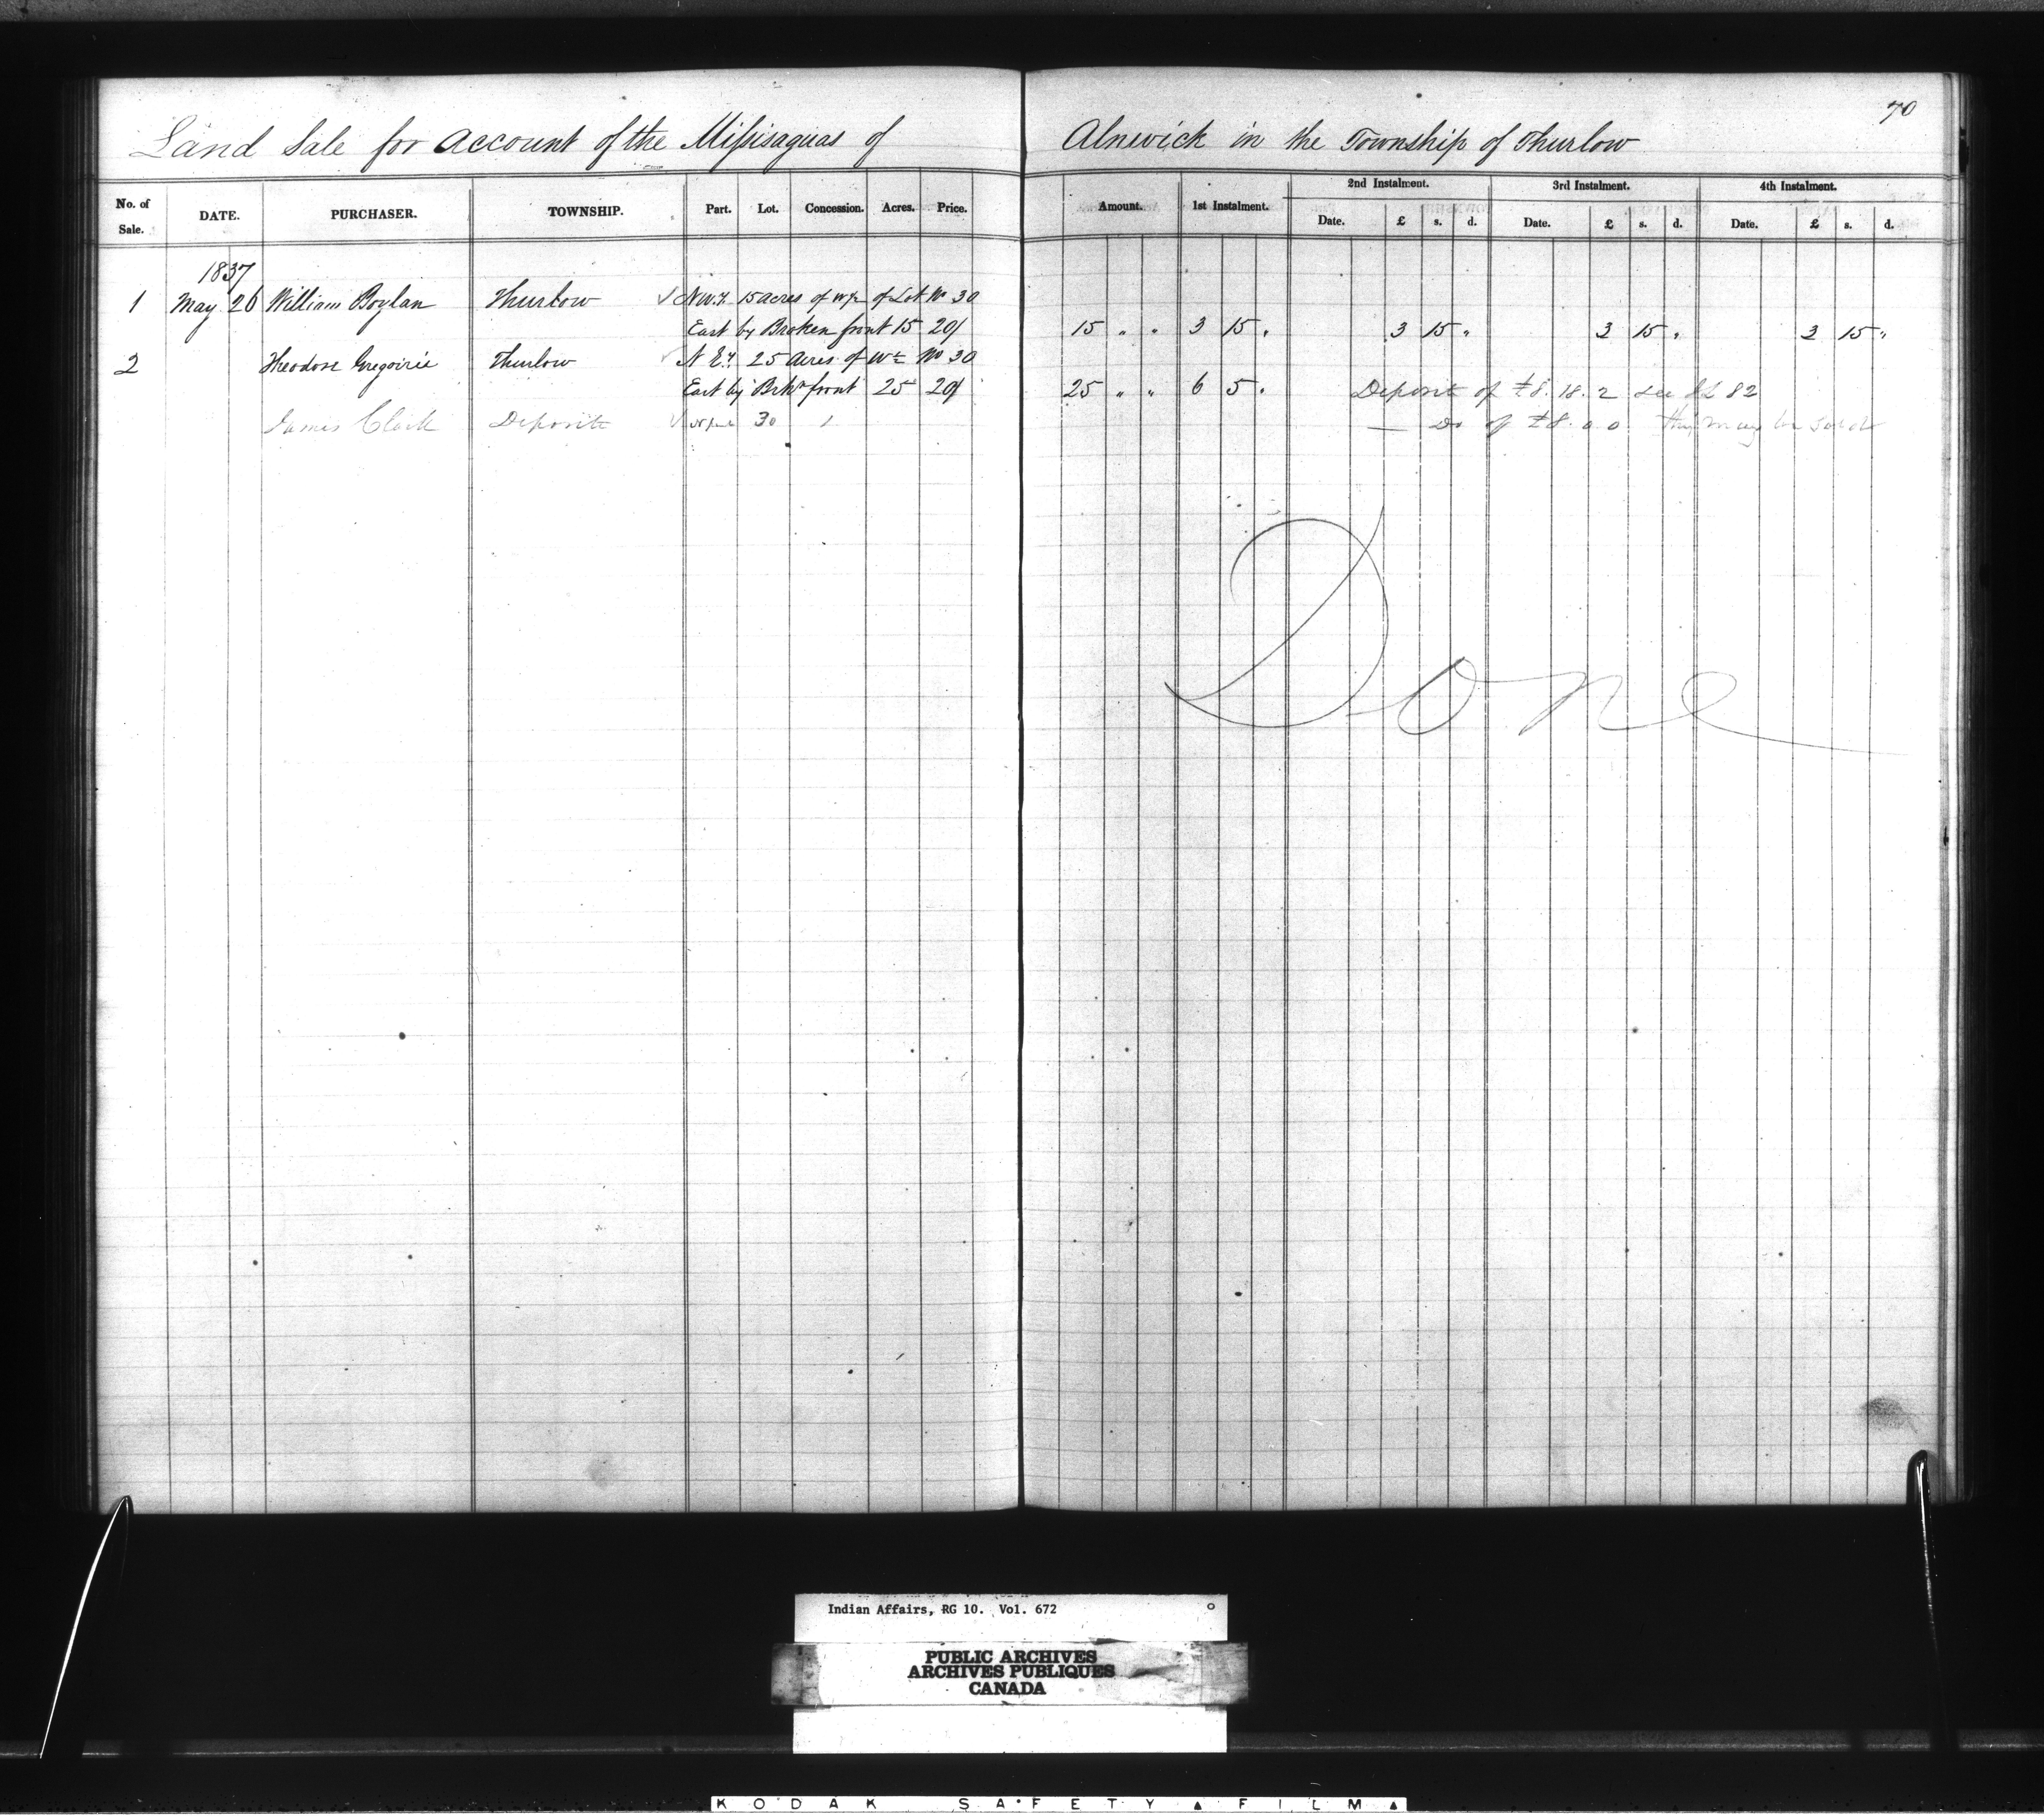 70
Land Sale for account of the Missisaguas of Alnwick in the Township of Thurlow
No. of Sale. DATE. PURCHASER. TOWNSHIP. Part. Lot. Concession. Acres. Price. Amount. 1st Instalment. 2nd Instalment. Date. £ s. d. 3rd Instalment. Date. £ s. d. 4th Instalment. Date. £ s. d.
1837
1 May 26 William Boylan Thurlow N.W. 15 acres of W½ of Lot No 30
East by Broken front 15 20/ 15 " " 3 15 " 3 15 " 3 15 " 3 15 "
2 Theodore Gregoirie Thurlow N E 25 acres of W½ No 30
East by Brkn front 25 20/ 25 " " 6 5 " Deposit of £8.18.2 see fol 82
James Clark Deposite 30 1 — Do of £8.0.0 may be sold
Done
Indian Affairs, RG 10. Vol. 672
PUBLIC ARCHIVES
ARCHIVES PUBLIQUES
CANADA
KODAK SAFETY FILM